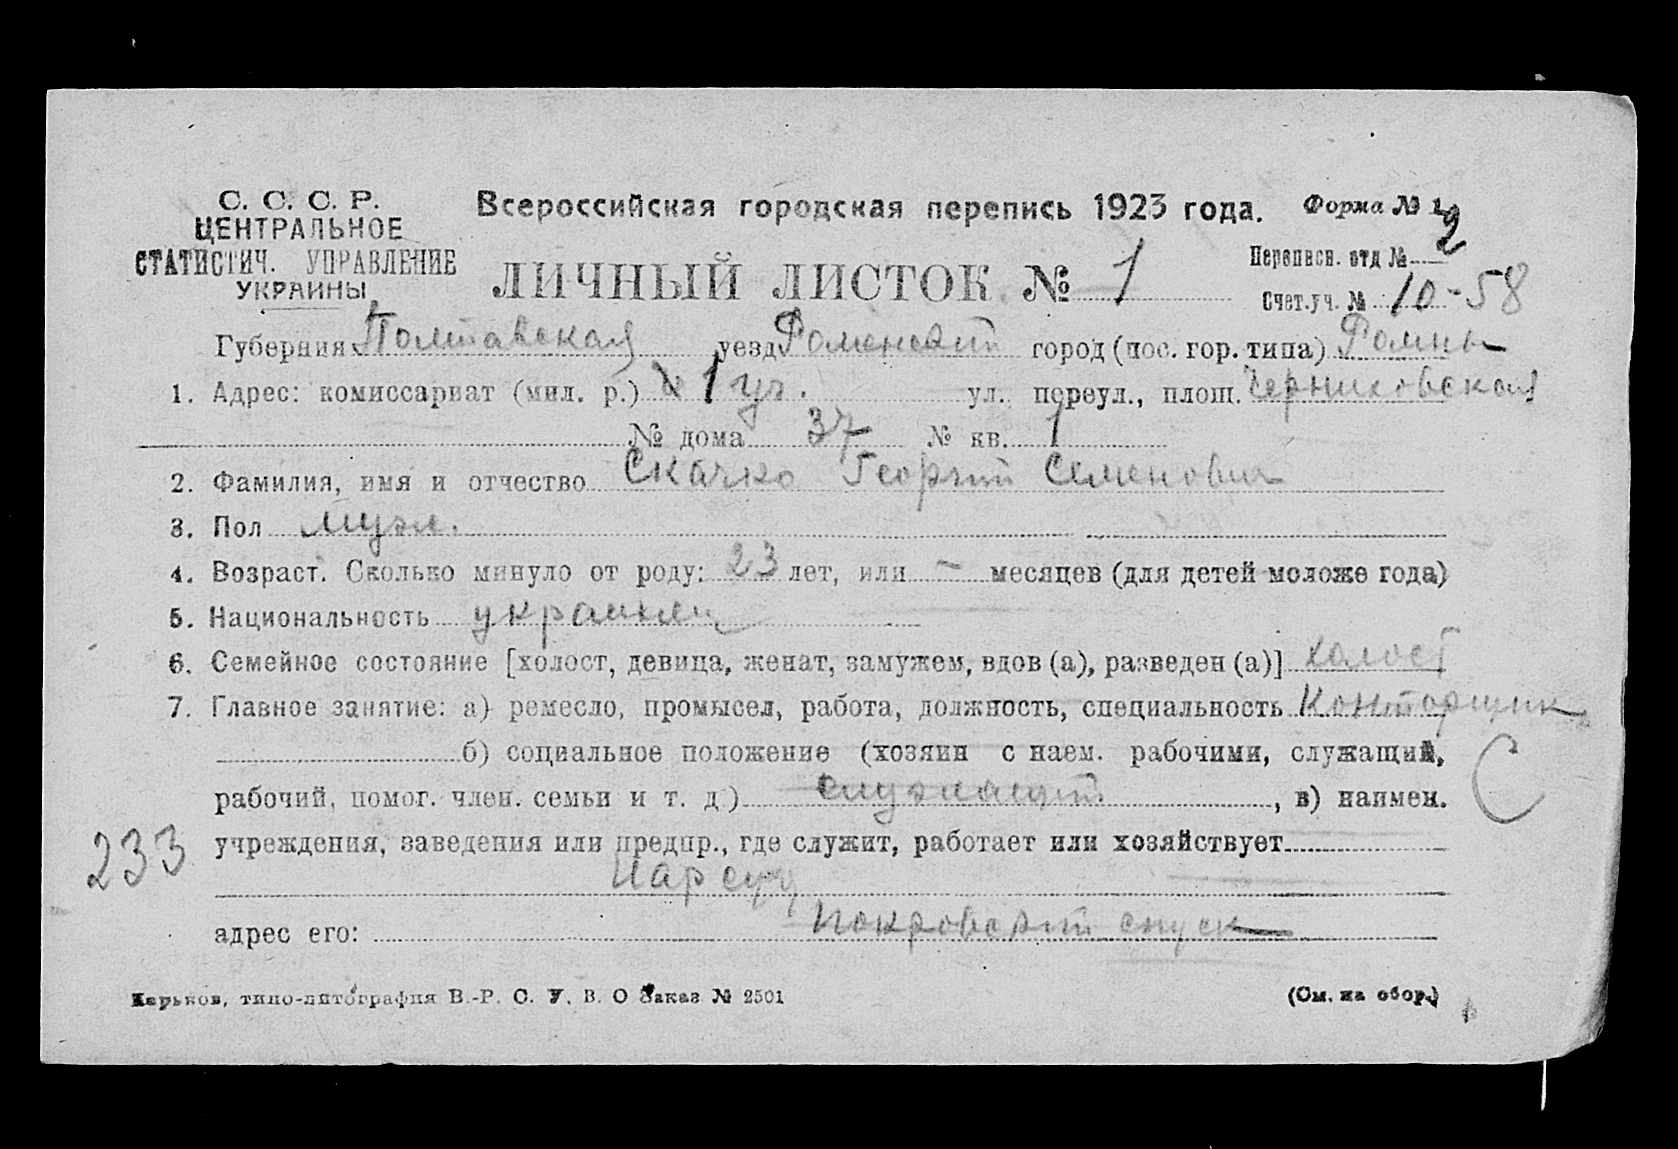 С. С. С. Р.
ЦЕНТРАЛЬНОЕ
СТАТИСТИЧ. УПРАВЛЕНИЕ
УКРАИНЫ
Всероссийская городская перепись 1923 года.
Форма № 1
2
ЛИЧНЫЙ ЛИСТОК № 1
Переписн. отд №
Счет.уч. № 10-58
Губерния Полтавская уезд Роменский город (пос. гор. типа) Ромны
1. Адрес: комиссариат (мил. р.) 1 уч. ул. переул., площ. Черниховская
№ дома 37 № кв. 1
2. Фамилия, имя и отчество Скачко Георгий Семенович
3. Пол муж.
4. Возраст. Сколько минуло от роду: 23 лет, или — месяцев (для детей моложе года)
5. Национальность украинец
6. Семейное состояние [холост, девица, женат, замужем, вдов (а), разведен (а)] холост
7. Главное занятие: а) ремесло, промысел, работа, должность, специальность Конторщик
б) социальное положение (хозяин с наем. рабочими, служащий,
рабочий, помог. член. семьи и т. д.) служащий, в) наимен.
С
учреждения, заведения или предпр., где служит, работает или хозяйствует
233
Нарсуд
адрес его: Покровский спуск
Харьков, типо-литография В.-Р. С. У. В. О Заказ № 2501
(См. на обор.)